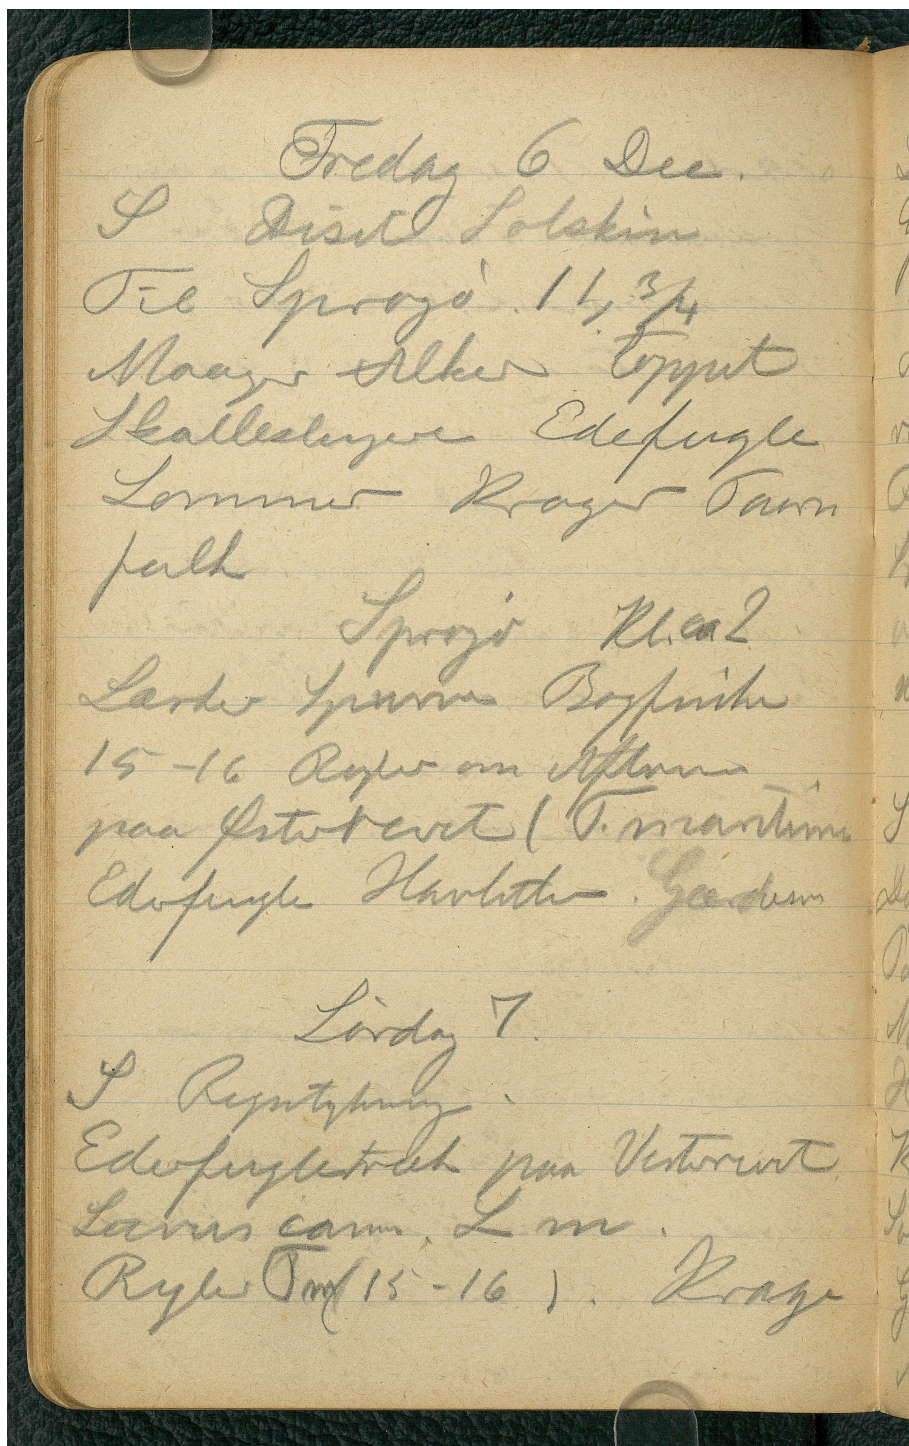 Fredag 6 Dec.
S Diset Solskin
Til Sprogø 11, 3/4
Maager Alker Toppet
Skallesluger Edefugle
Lommer Krager Taarn
falk
Sprogø Kl. ca 2
Lærker Spurve Bogfinke
15-16 Ryler om Aftnen
paa Østerrevet (T. maritima
Ederfugle Havlitter.
Lørdag 7.
S Regntykning.
Ederfugletræk paa Vesterrevet
Larus canus, L m.
Ryler T m (15-16). Krage